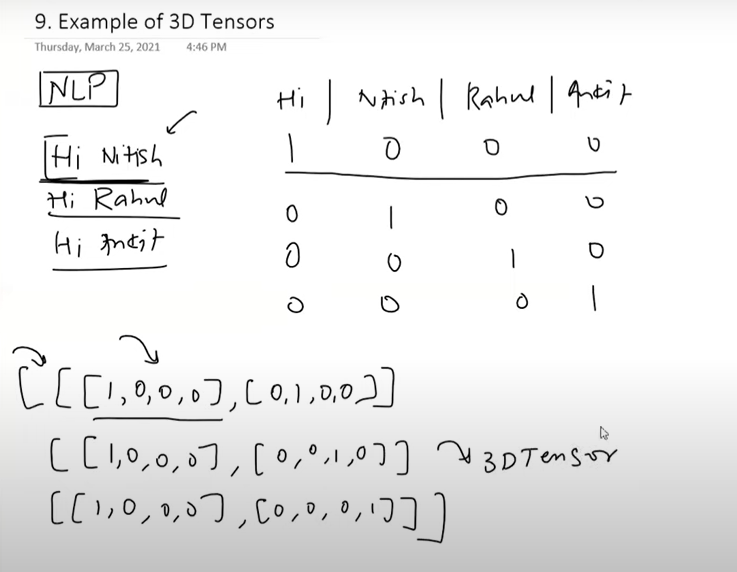 9. Example of 3D Tensors
Thursday, March 25, 2021 4:46 PM
NLP
Hi | Nitish | Rahul | Ankit
Hi Nitish
1 0 0 0
Hi Rahul
0 1 0 0
Hi Ankit
0 0 1 0
0 0 0 1
[[[1,0,0,0],[0,1,0,0]]
[[1,0,0,0],[0,0,1,0]] 3D Tensor
[[1,0,0,0],[0,0,0,1]]]